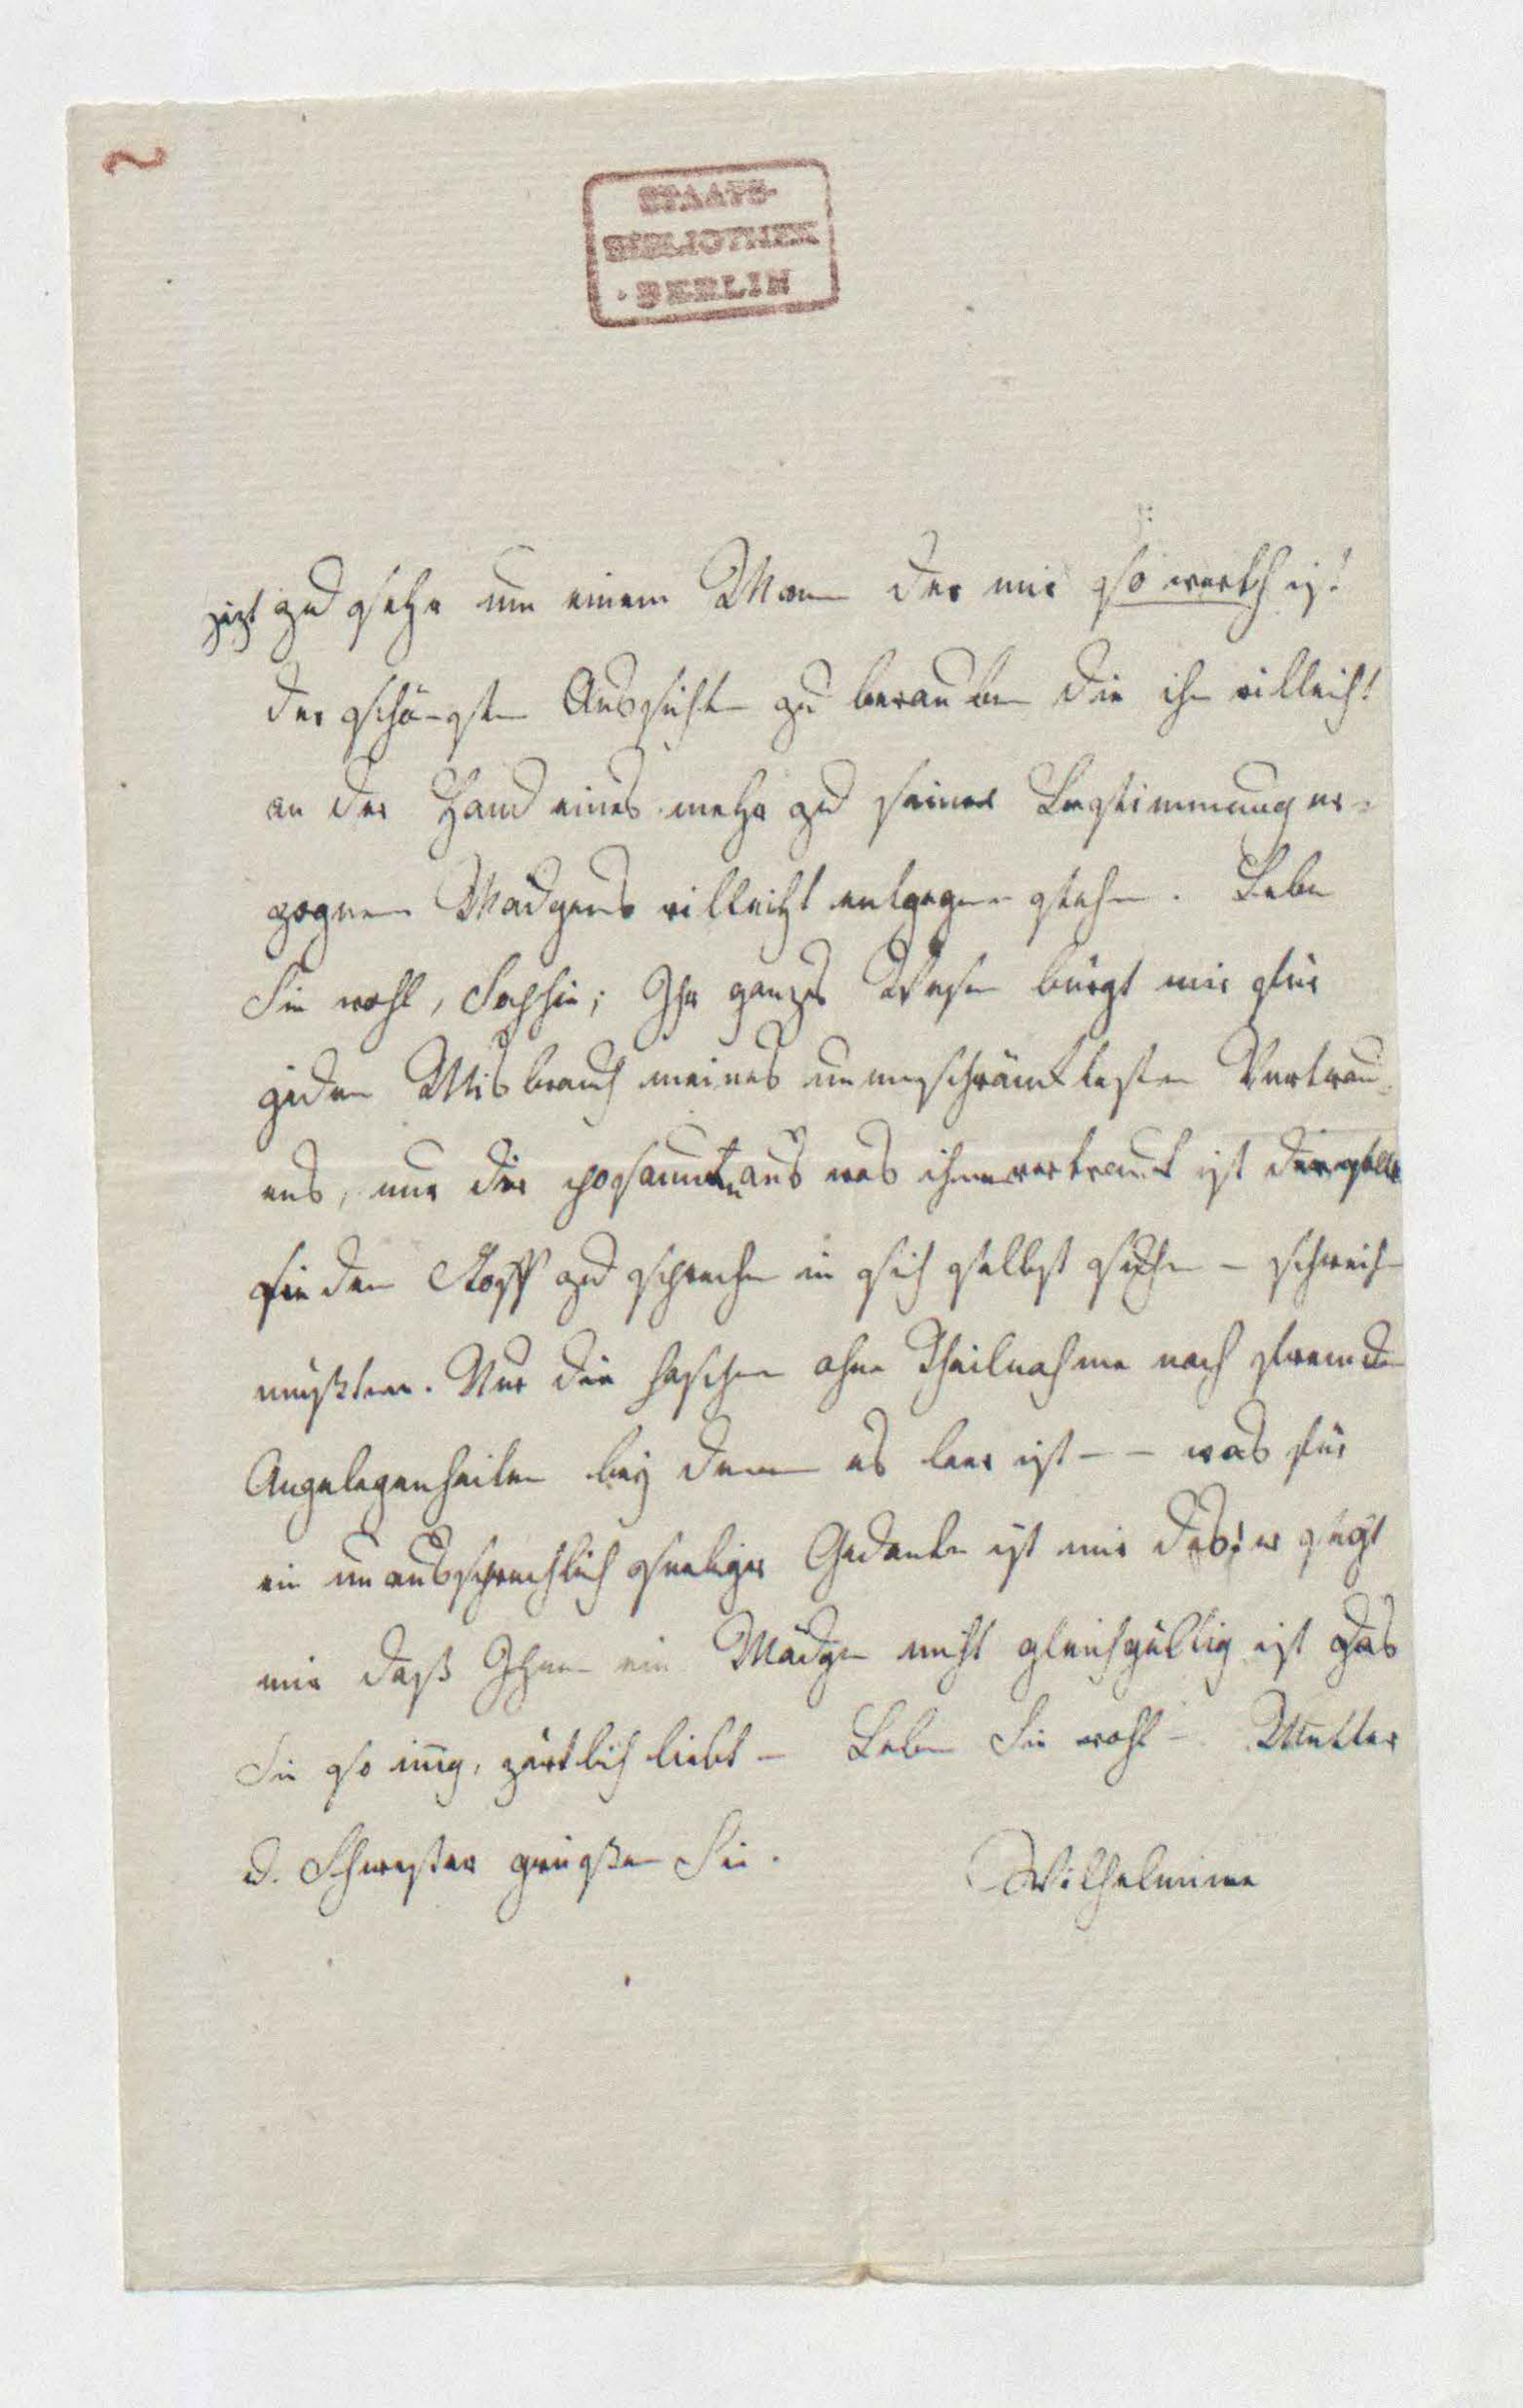 STAATS-
BIBLIOTHEK
BERLIN
jezt zu sehr um einem Mann der mir so werth ist
der schönsten Aussichten zu berauben die ihn villeicht
an der Hand eines mehr zu seiner Bestimmung er-
zognen Mädgens villeicht entgegen stehen. Leben
Sie wohl, Sophie; Ihr ganzes Wesen bürgt mir für
jeden Misbrauch meines unumschränktesten Vertrau-
ens, nur der posaunt aus was ihm vertraut ist
sie den Stoff zu sprechen in sich selbst suchen – schweigen
müßten. Nur die haschen ohne Theilnahme nach fremden
Angelegenheiten bey denen es leer ist – – was für
ein unaussprechlich seeliger Gedanke ist mir das! er sagt
mir daß Ihnen ein Mädgen nicht gleichgültig ist das
Sie so innig, zärtlich liebt – Leben Sie wohl – Mutter
u. Schwester grüßen Sie.
Wilhelmine